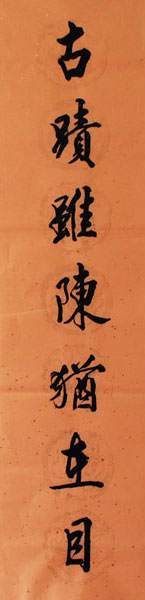 古蹟雖陳猶在目